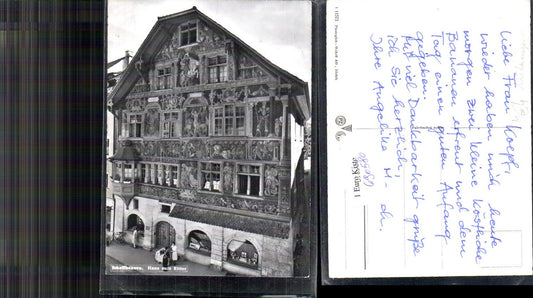 Schaffhausen. Haus zum Ritter
Liebe Frau Koepf,
wieder haben mich heute
morgen zwei kleine köstliche
Bananen erfreut und dem
Tag einen guten Anfang
gegeben.
Mit viel Dankbarkeit grüße
ich Sie herzlich,
Ihre Angelika M-